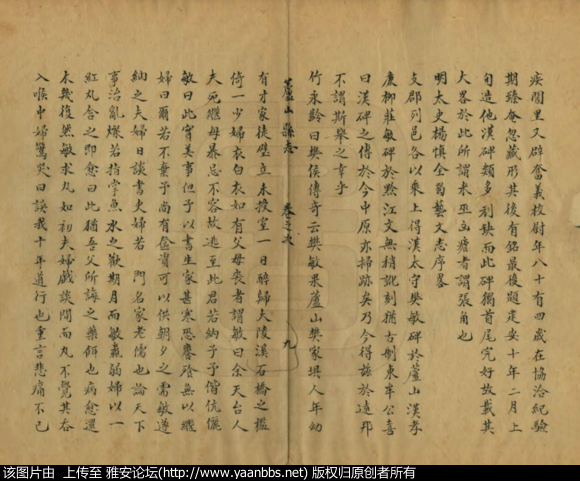 疾閭里又辟奮義校尉年八十有四歲在協洽紀驗
期臻奄忽藏形其後有銘最後題建安十年二月上
旬造他漢碑類多刓缺而此碑獨首尾完好故載其
大畧於此所謂米巫立瘧者謂張角也
明太史楊慎全蜀藝文志序畧
支郡列邑各以乘上得漢太守樊敏碑於蘆山漢孝
廉柳莊敏碑於黔江文無梢訛刻猶古制東阜公喜
曰漢碑之傳於今中原亦掃跡矣乃今得茲於遠邦
不謂斯舉之幸乎
竹永齡曰樊侯傳奇云樊敏果蘆山樊家垻人年幼
蘆山縣志 卷之次 九
有才家徒壁立未授室一日醉歸夫陵溪石橋之檻
倚一少婦衣白衣如有父母喪者謂敏曰余天台人
夫死繼母暴忌不容故逃至此君若納予予偕伉儷
敏曰此實美事但予以書生家甚寒恐饔飱無以繼
婦曰爾若不棄予尚有奩資可以供朝夕之需敏遂
納之夫婦日談書史婦若 門名家老儒也論天下
事治亂燦若指掌魚水之歡期月而敏羸弱婦以一
紅丸含之即愈曰此猶吾父所誨之藥餌也病愈還
未幾復羸敏求丸如初夫婦戲談間而丸不覺其吞
入喉中婦驚哭曰誤我十年道行也重言悲痛不已
该图片由 上传至 雅安论坛(http://www.yaanbbs.net) 版权归原创者所有